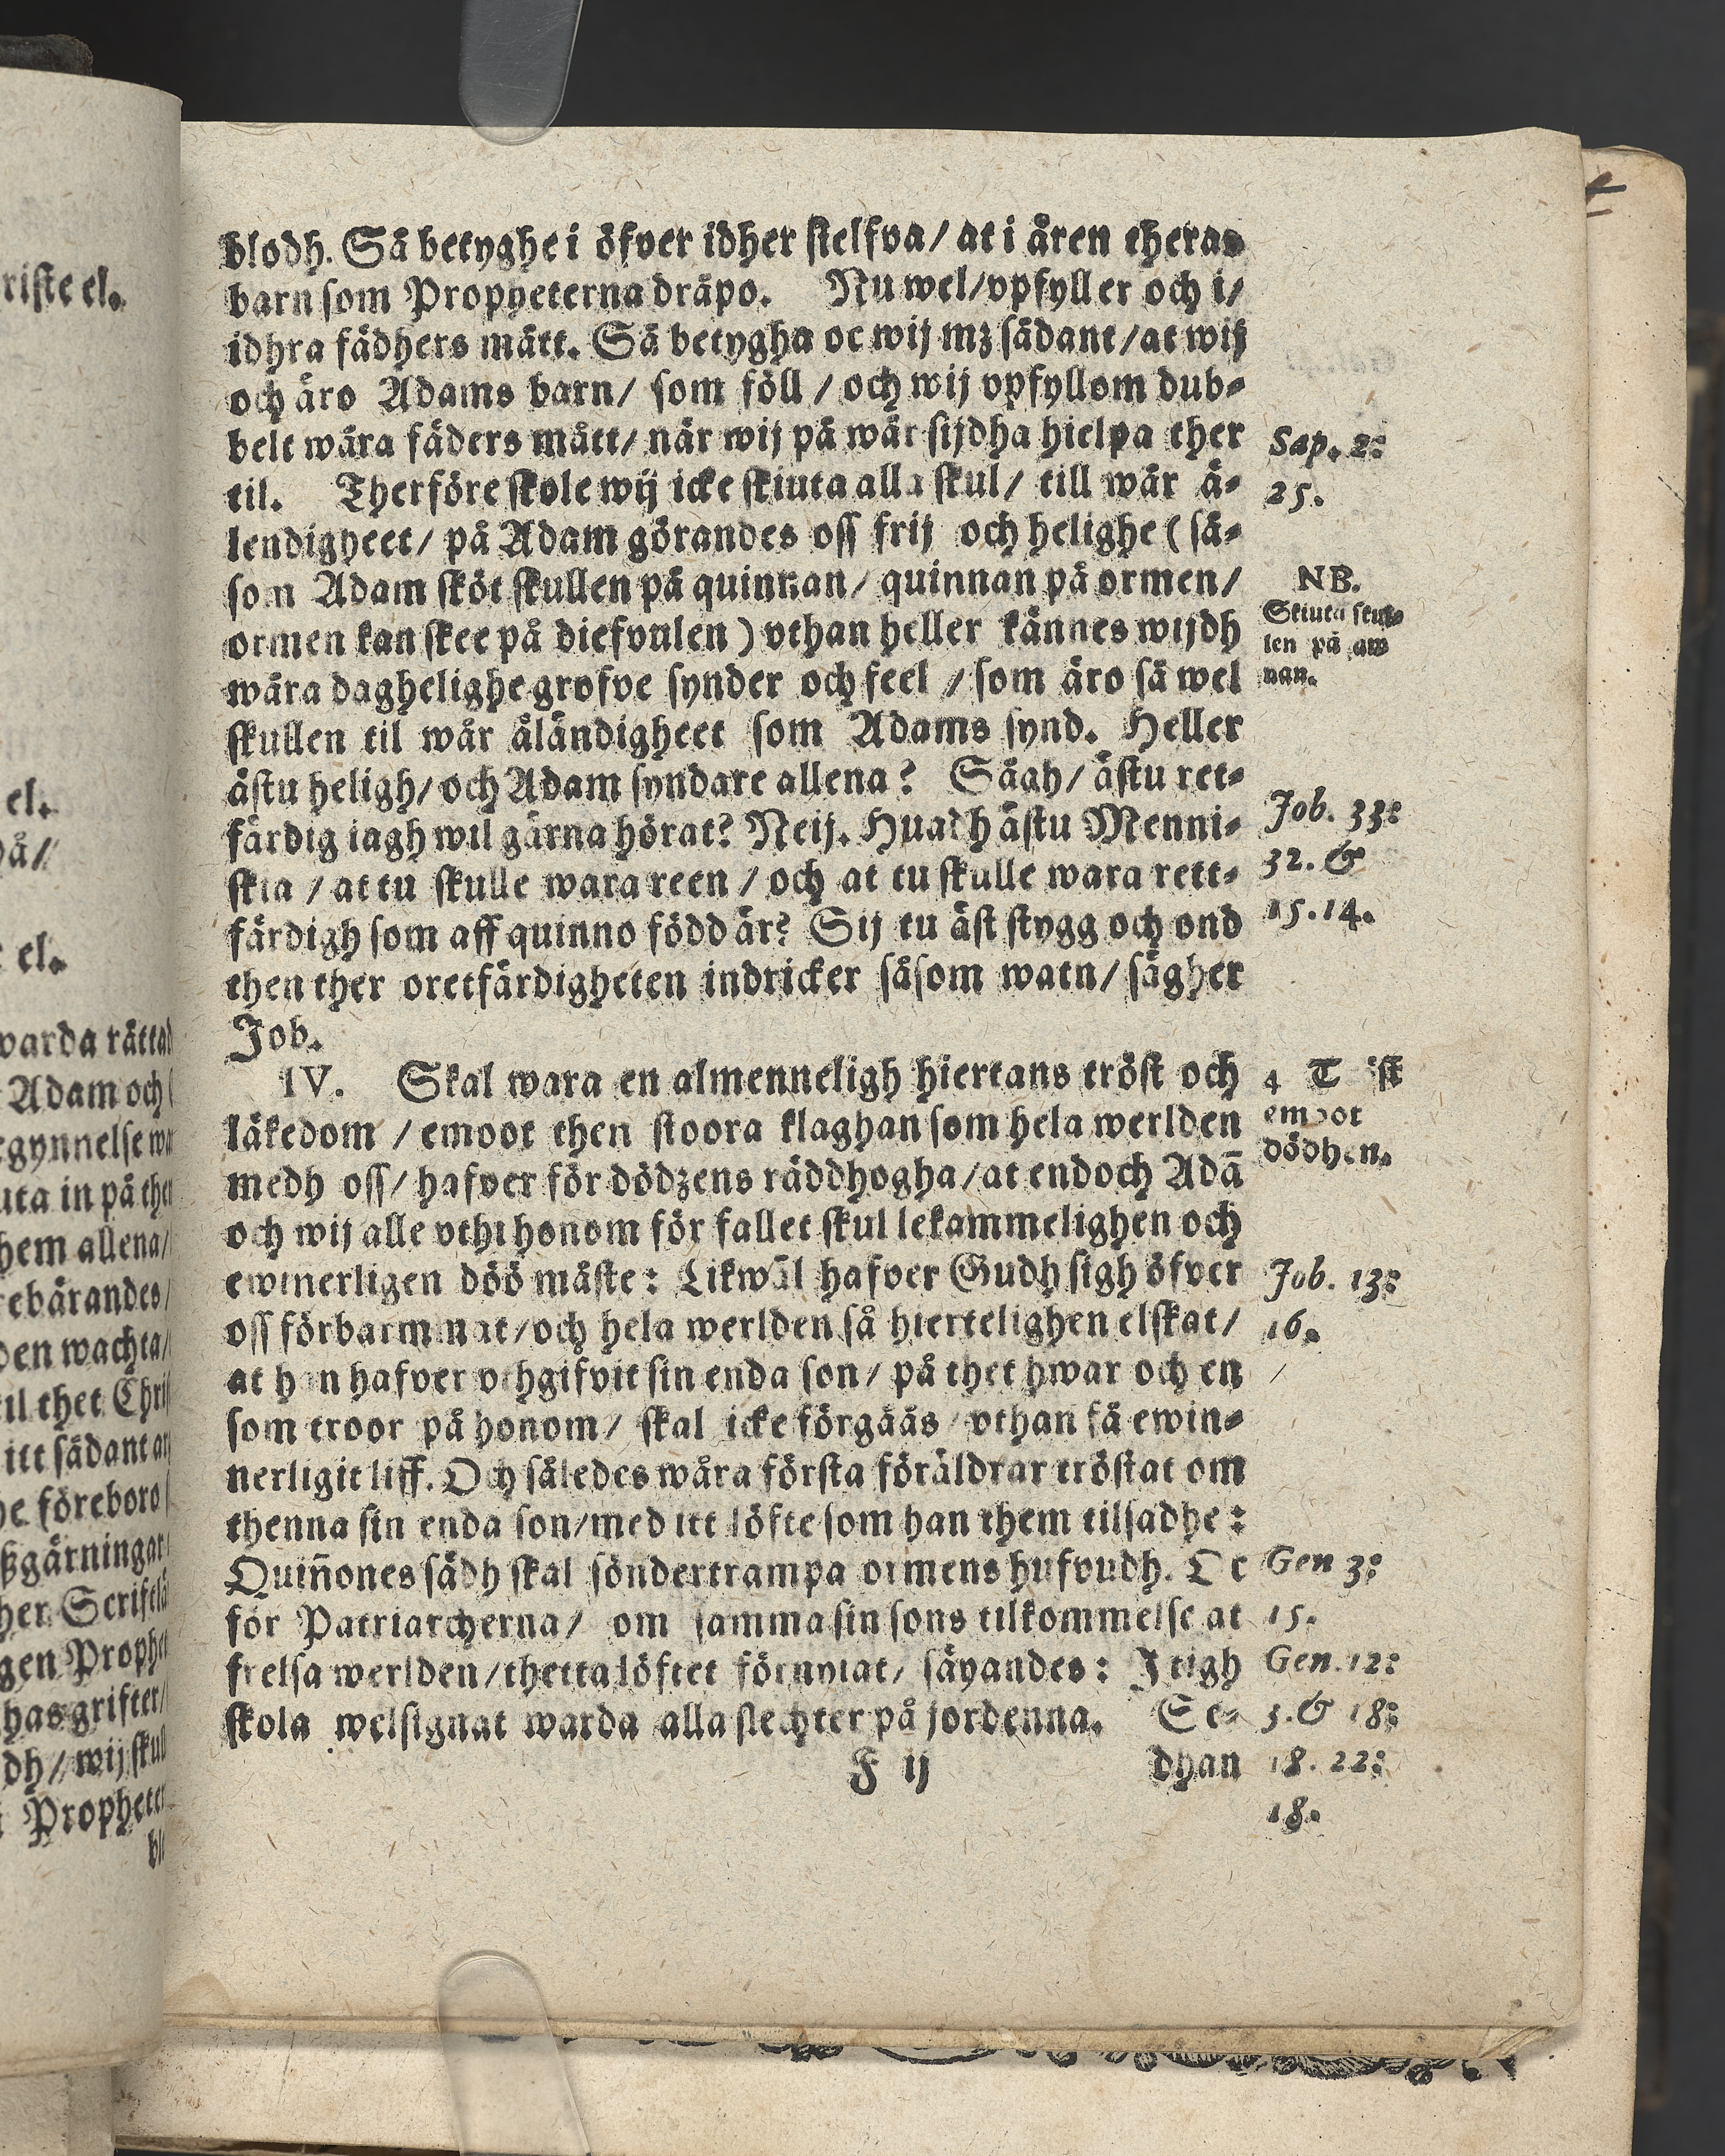 blodh. Så betyghe i öfver idher sielfva/ at i ären theras
barn som Propheterna dräpo. Nu wel/ vpfyller och i/
idhra fädhers mått. Så betygha oc wij mz sådant/ at wij
och äro Adams barn/ som föll / och wij vpfyllom dub-
belt wåra fäders mått/ när wij på wår sijdha hielpa ther
til. Therföre skole wij icke skiuta alla skul/ till wår ä-
lendigheet/ på Adam görandes oss frij och helighe ( så-
som Adam sköt skullen på quinnan/ quinnan på ormen/
ormen kan skee på diefvulen ) vthan heller kännes wijdh
wåra daghelighe grofve synder och feel / som äro så wel
skullen til wår äländigheet som Adams synd. Heller
ästu heligh/ och Adam syndare allena? Sägh/ ästu ret-
färdig iagh wil gärna hörat? Neij. Huadh ästu Menni-
skia / at tu skulle wara reen / och at tu skulle wara rett-
färdigh som aff quinno född är? Sij tu äst stygg och ond
then ther oretfärdigheten indricker såsom watn/ sägher
Job.
IV. Skal wara en almenneligh hiertans tröst och
läkedom / emoot then stoora klaghan som hela werlden
medh oss/ hafver för dödzens räddhogha/ at endoch Adā
och wij alle vthi honom för fallet skul lekammelighen och
ewinnerligen döö måste: Likwäl hafver Gudh sigh öfver
oss förbarmnat/ och hela werlden så hiertelighen elskat/
at han hafver vthgifvit sin enda son/ på thet hwar och en
som troor på honom/ skal icke förgåås vthan få ewin-
nerligit liff. Och således wåra första föräldrar tröstat om
thenna sin enda son/ med itt löfte som han them tilsadhe:
Quiñones sädh skal söndertrampa ormens hufvudh. Oc
för Patriarcherna/ om samma sin sons tilkommelse at
frelsa werlden/ thetta löftet förnyiat/ säyandes: I tigh
skola welsignat warda alla slechter på jordenna. Se-
F ij dhan
Sap. 2:
25.
NB.
Skiuta skul-
len på an-
nan.
Job. 33:
32. &
15. 14.
4 Tröst
emoot
dödhen.
Job. 13:
16.
Gen 3:
15.
Gen. 12:
3. & 18:
18. 22:
18.
riste el.
el.
då/
el.
warda rättad
Adam och
hem allena/
rebärandes/
den wachta/
til thet
itt sådant
he föreboro
gärningar
gen
has grifter/
wij